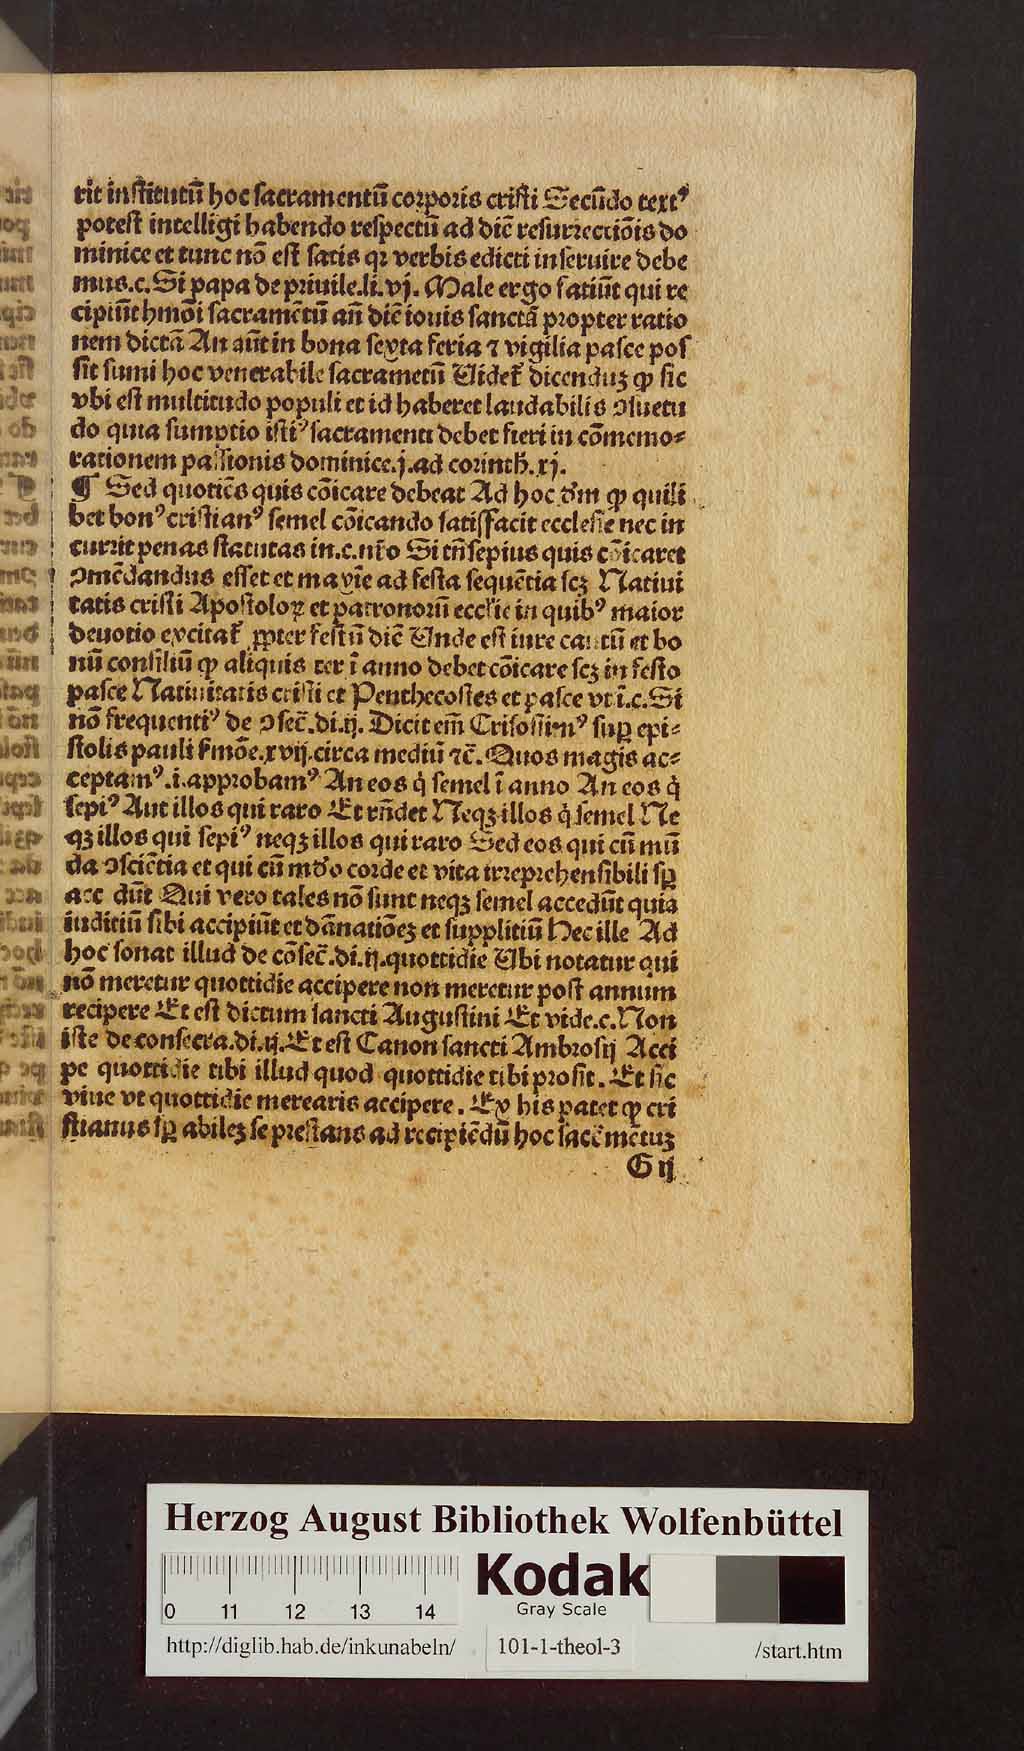 rit institutū hoc sacramentū corporis cristi Secūdo textꝰ
potest intelligi habendo respectū ad diē resurrectiōis do
minice et tunc nō est satis qꝛ verbis edicti inseruire debe
mus.c.Si papa de priuile.li.vj. Male ergo fatiūt qui re
cipiūt hmōi sacramētū añ diē iouis sanctā propter ratio
nem dictā An aūt in bona sexta feria ⁊ vigilia pasce pos
sit sumi hoc venerabile sacrametū Videt᷑ dicenduꝫ ꝙ sic
vbi est multitudo populi et id haberet laudabilis ↄsuetu
do quia sumptio istiꝰ sacramenti debet fieri in cōmemo⸗
rationem passionis dominice.j.ad corinth̄.xj.
¶ Sed quotiēs quis cōicare debeat Ad hoc dm̄ ꝙ quili
bet bonꝰ cristianꝰ semel cōicando satisfacit ecclesie nec in
currit penas statutas in.c.nr̄o Si tn̄ sepius quis cōicaret
ↄmēdandus esset et maxīe ad festa sequētia scꝫ Natiui
tatis cristi Apostoloꝝ et patronorū ecclie in quibꝰ maior
deuotio excitat᷑ ꝓpter festū diē Vnde est iure cautū et bo
nū consiliū ꝙ aliquis ter ī anno debet cōicare scꝫ in festo
pasce Natiuitatis cristi et Penthecostes et pasce vt ī.c.Si
nō frequentiꝰ de ↄsec̄.di.ij. Dicit em̄ Crisostimꝰ suꝑ epi⸗
stolis pauli s̄mōe.xvij.circa mediū ⁊c̄. Quos magis ac⸗
ceptamꝰ.i.approbamꝰ An eos q̇ semel ī anno An eos q̇
sepiꝰ Aut illos qui raro Et rn̄det Neqꝫ illos q̇ semel Ne
qꝫ illos qui sepiꝰ neqꝫ illos qui raro Sed eos qui cū mū
da ↄsciētia et qui cū mūdo corde et vita irreprehensibili sꝑ
accedūt Qui vero tales nō sunt neqꝫ semel accedūt quia
iuditiū sibi accipiūt et dānatiōeꝫ et supplitiū Hec ille Ad
hoc sonat illud de cōsec̄.di.ij.quottidie Vbi notatur qui
nō meretur quottidie accipere non meretur post annum
recipere Et est dictum sancti Augustini Et vide.c.Non
iste de consecra.di.ij.Et est Canon sancti Ambrosij Acci
pe quottidie tibi illud quod quottidie tibi prosit. Et sic
viue vt quottidie merearis accipere. Ex his patet ꝙ cri
stianus sꝑ abileꝫ se prestans ad recipiēdū hoc sacr̄mētuꝫ
G ij
Herzog August Bibliothek Wolfenbüttel
0 11 12 13 14
Kodak
Gray Scale
http://diglib.hab.de/inkunabeln/
101-1-theol-3
/start.htm